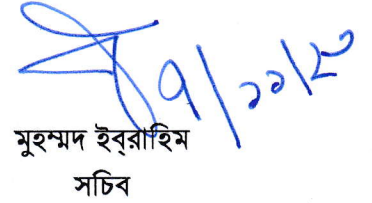 ৭/১১/২৩
মুহম্মদ ইব্‌রাহিম
সচিব